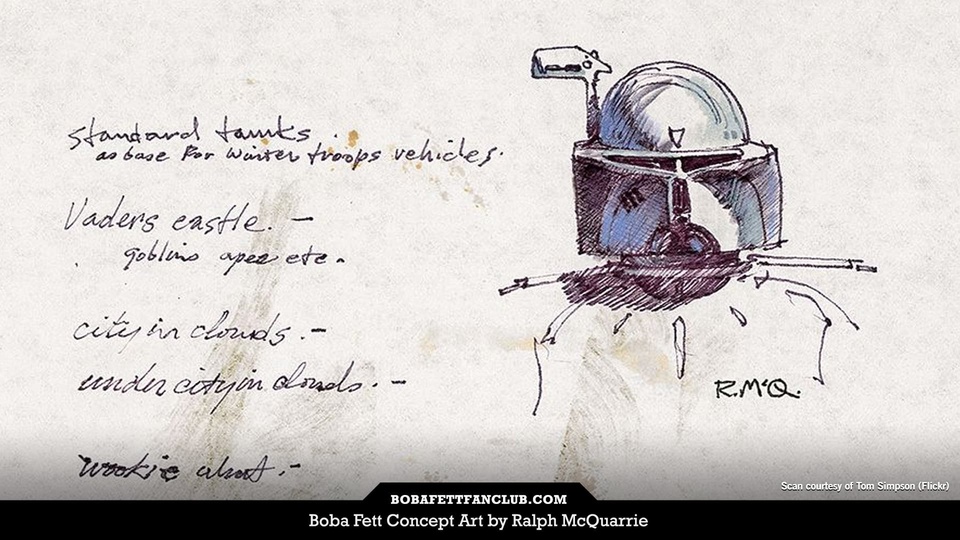 standard tanks
as base for winter troops vehicles.
Vaders castle. —
goblins apes etc.
city in clouds. —
under city in clouds. —
wookie
R.McQ.
Scan courtesy of Tom Simpson (Flickr)
BOBAFETTFANCLUB.COM
Boba Fett Concept Art by Ralph McQuarrie